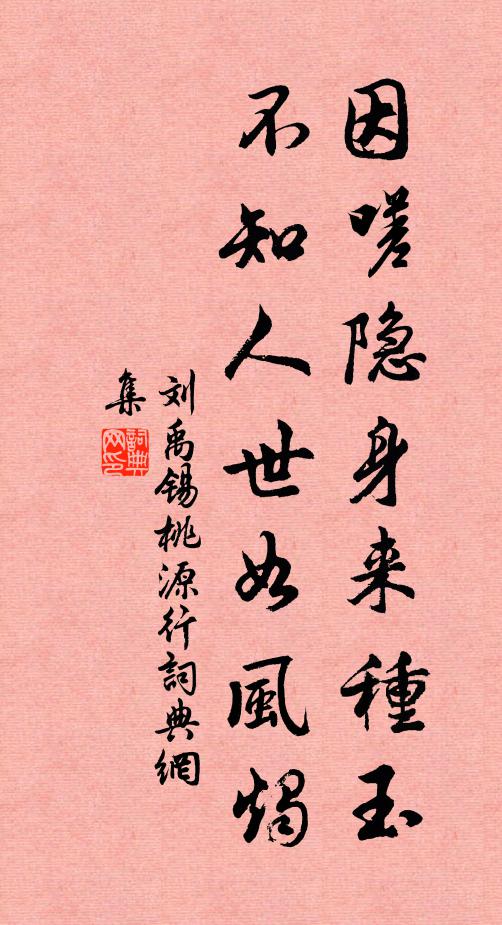 因嗟隐身来種玉
不知人世如風燭
刘禹锡桃源行詞典網
集
詞典
网印